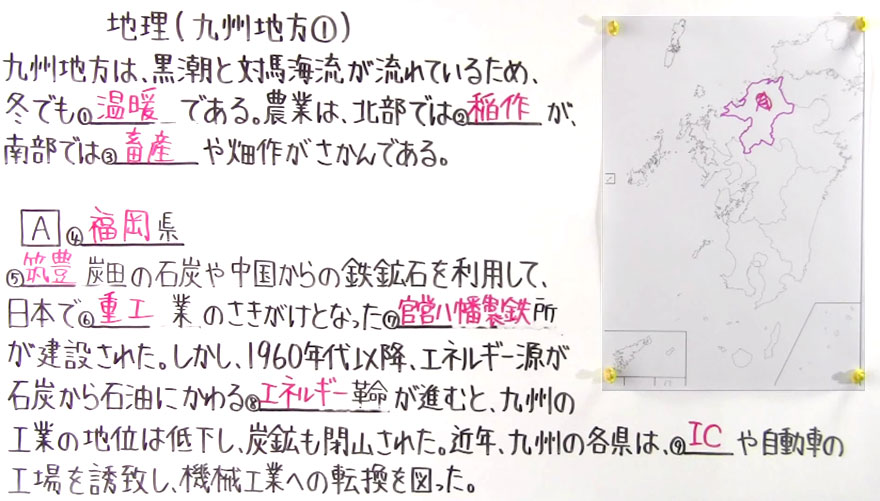 地理(九州地方①)
九州地方は、黒潮と対馬海流が流れているため、
冬でも①温暖である。農業は、北部では②稲作が、
南部では③畜産や畑作がさかんである。
A ④福岡県
⑤筑豊炭田の石炭や中国からの鉄鉱石を利用して、
日本で⑥重工業のさきがけとなった⑦官営八幡製鉄所
が建設された。しかし、1960年代以降、エネルギー源が
石炭から石油にかわる⑧エネルギー革命が進むと、九州の
工業の地位は低下し、炭鉱も閉山された。近年、九州の各県は、⑨ICや自動車の
工場を誘致し、機械工業への転換を図った。